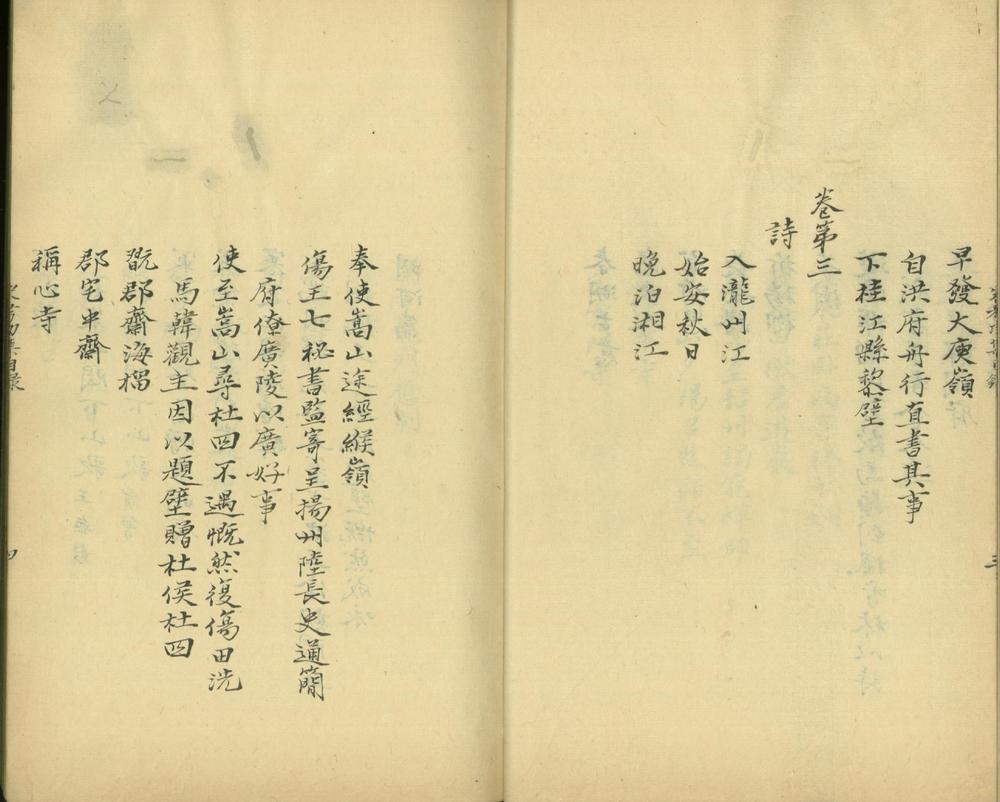 早發大庾嶺
自洪府舟行直書其事
下桂江縣黎壁
卷第三
詩
入瀧州江
始安秋日
晚泊湘江
奉使嵩山途經緱嶺
傷王七秘書監寄呈揚州陸長史通簡
府僚廣陵以廣好事
使至嵩山尋杜四不遇慨然復傷田洗
馬韓觀主因以題壁贈杜侯杜四
翫郡齋海榴
郡宅中齋
稱心寺